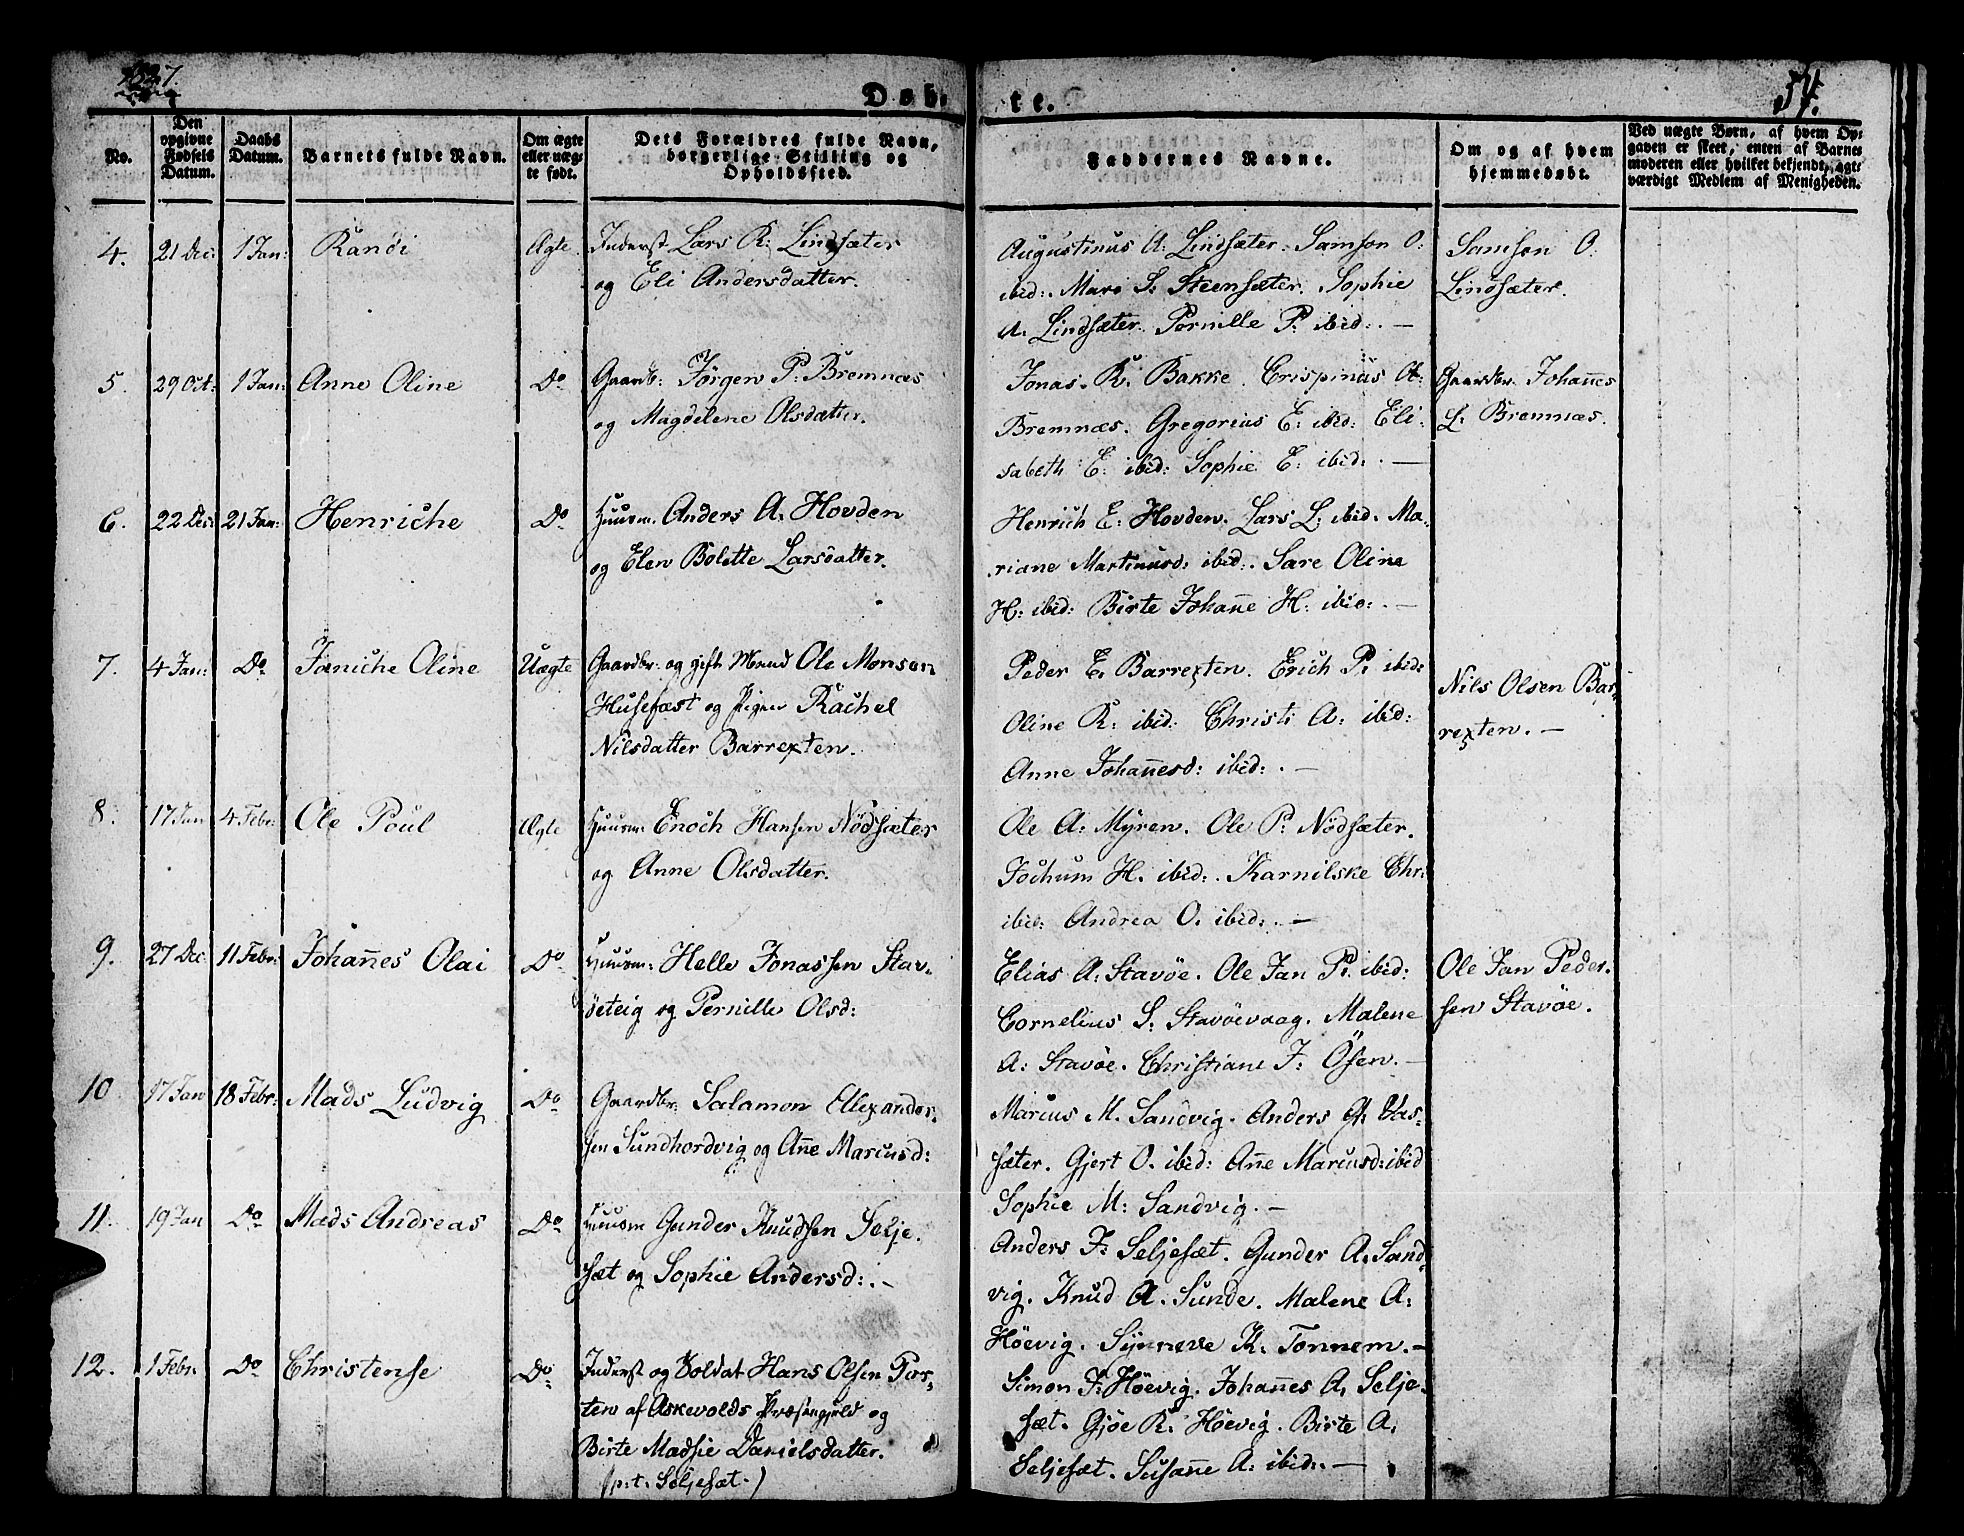 1827.
Døb-
te.
54.
No.
Den opgivne Fødsels Datum.
Daabs Datum.
Barnets fulde Navn.
Om ægte eller uægte født.
Dets Forældres fulde Navn, borgerlige Stilling og Opholdssted.
Faddernes Navne.
Om og af hvem hjemmedøbt.
Ved uægte Børn, af hvem Opgaven er skeet, enten af Barnemoderen eller hvilket bekjendt, agtværdigt Medlem af Menigheden.
4. 21 Dec: 1 Jan: Randi Ægte
Inderst Lars R: Lindsæter
og Eli Andersdatter.
Augustinus A: Lindsæter. Samson O:
ibid: Mari S: Steensæter. Sophie
A: Lindsæter. Pernille P: ibid: . —
Samson O:
Lindsæter.
5. 29 Oct: 1 Jan: Anne Oline Do
Gaardbr: Jørgen P: Bremnæs
og Magdelene Olsdatter.
Jonas R: Bakke. Crispinus A:
Bremnæs. Gregorius E: ibid: Eli:
sabeth E: ibid: Sophie E: ibid: . —
Gaardbr. Johannes
L. Bremnæs.
6. 22 Dec: 21 Jan: Henriche Do
Huusm. Anders A. Hovden
og Elen Bolette Larsdatter.
Henrich E: Hovden. Lars L: ibid. Ma-
riane Martinusd: ibid:. Sare Oline
H: ibid: Birte Johanne H: ibid: . —
7. 4 Jan: Do Janiche Oline Uægte
Gaardbr: og gift Mand Ole Monsen
Husefæst og Pigen Rachel
Nilsdatter Barrexten.
Peder E. Barrexten. Erich P. ibid:
Oline R: ibid: Christi A: ibid:
Anne Johannesd: ibid: . —
Nils Olsen Bar-
rexten. —
8. 17 Jan 4 Febr: Ole Poul Ægte
Huusm: Enoch Hansen Nødsæter
og Anne Olsdatter.
Ole A: Myren. Ole P: Nødsæter.
Jochum H. ibid: . Karnilske Chr:
ibid: Andrea O. ibid: . —
9. 27 Dec: 11 Febr: Johannes Olai Do
Huusm: Helle Jonassen Stav-
øeteig og Pernille Olsd:
Elias A: Stavøe. Ole Jan P. ibid:
Cornelius S: Stavøevaag. Malene
A: Stavøe. Christiane J: Øsen. —
Ole Jan Peder-
sen Stavøe.
10 17 Jan 18 Febr: Mads Ludvig Do
Gaardbr: Salamon Alexander-
sen Sundhordvig og Anne Marcusd:
Marcus M. Sandvig. Anders A: Vas-
sæter. Gjert O. ibid: Anne Marcusd: ibid
Sophie M: Sandvig. —
11. 19 Jan Do Mads Andreas Do
Huusm Gunder Knudsen Selje-
sæt og Sophie Andersd: . —
Anders J: Seljesæt. Gunder A. Sand-
vig. Knud A. Sunde. Malene A:
Høevig. Synneve K: Tonnem. —
12. 1 Febr. Do Christense Do
Inderst og Soldat Hans Olsen Pers-
ten af Askevolds Præstegjeld og
Birte Madsie Danielsdatter.
(p: t: Seljesæt.)
Simon J: Høevig. Johannes A. Selje-
sæt. Gjøe R. Høevig. Birte A.
Seljesæt. Susanne A: ibid: . —